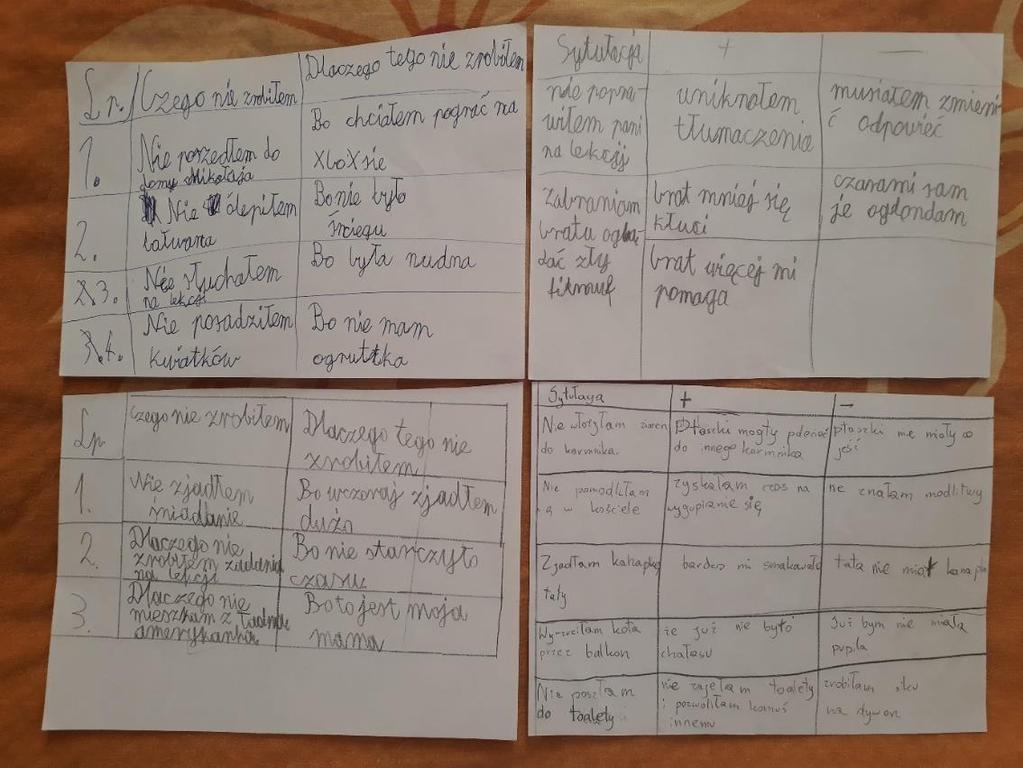 Lp. Czego nie zrobiłem Dlaczego tego nie zrobiłem
1. Nie poszedłem do
domu Mikołaja
Bo chciałem pograć na
XboXsie
2. Nie ólepiłem
bałwana
Bo nie było
śńiegu
3. Nie słuchałem
na lekcji
Bo była nudna
4. Nie posadziłem
kwiatków
Bo nie mam
ogruttka
Sytułacja + —
nie popra-
wiłem pani
na lekcji
uniknołem
tłumaczenia
musiałem zmieni-
ć odpowieć
Zabraniam
bratu oglą-
dać zły
brat mniej się
kłuci
brat więcej mi
pomaga
czasami sam
je oglondam
Lp Czego nie zrobiłem Dlaczego tego nie
zrobiłem
1. Nie zjadłem
śniadanie
Bo wczoraj zjadłem
dużo
2. Dlaczego nie
zrobiłem zadania
na lekcji
Bo nie starczyło
czasu
3. Dlaczego nie
mieszkam z
Bo to jest moja
mama
Sytułaya + –
Nie włożyłam ziaren
do karmnika.
Ptaszki mogły
do innego karmnika
ptaszki nie miały co
jeść
Nie pomodliłam
ą w kościele
zyskałam czas na
wygupianie się
nie znałam modlitwy
Zjadłam kanapkę
taty
bardzo mi smakowało
tata nie miał
Wyrzuciłam kota
przez balkon
że już nie było
chałasu
Już bym nie miała
pupila
Nie poszłam
do toalety
nie zajełam toalety
i pozwoliłam komuś
innemu
zrobiłam siku
na dywan